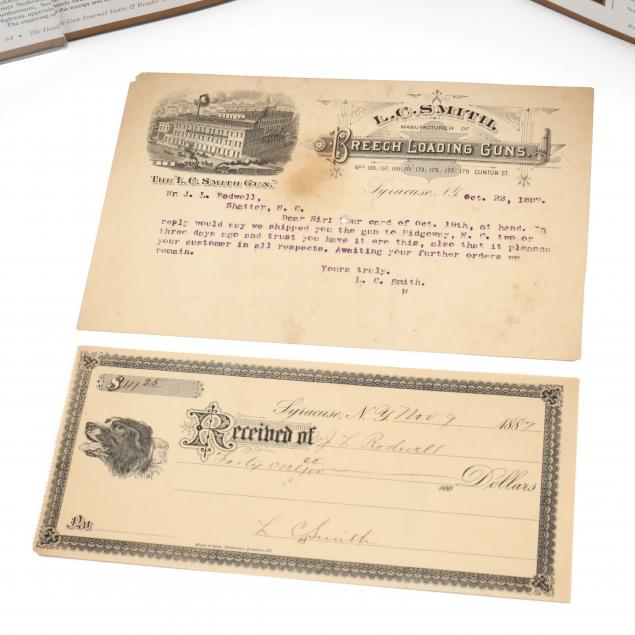 The Double Gun Journal Index & Reader
The engraving of the receipt and
L.C. SMITH,
MANUFACTURER OF
BREECH LOADING GUNS.
Nos 165, 167, 169, 171, 173, 175, 177, 179 CLINTON ST.
THE L.C. SMITH GUN.
Syracuse, N.Y. Oct. 22, 1887.
Mr. J. L. Rodwell,
Shatter, N. C.
Dear Sir: Your card of Oct. 19th, at hand. In
reply would say we shipped you the gun to Ridgeway, N. C. two or
three days ago and trust you have it ere this, also that it pleases
your customer in all respects. Awaiting your further orders we
remain.
Yours truly.
L. C. Smith.
$41 25
Syracuse, N.Y. Nov 9 1887
Received of J L Rodwell
Forty one 25/100 100 Dollars
L C Smith